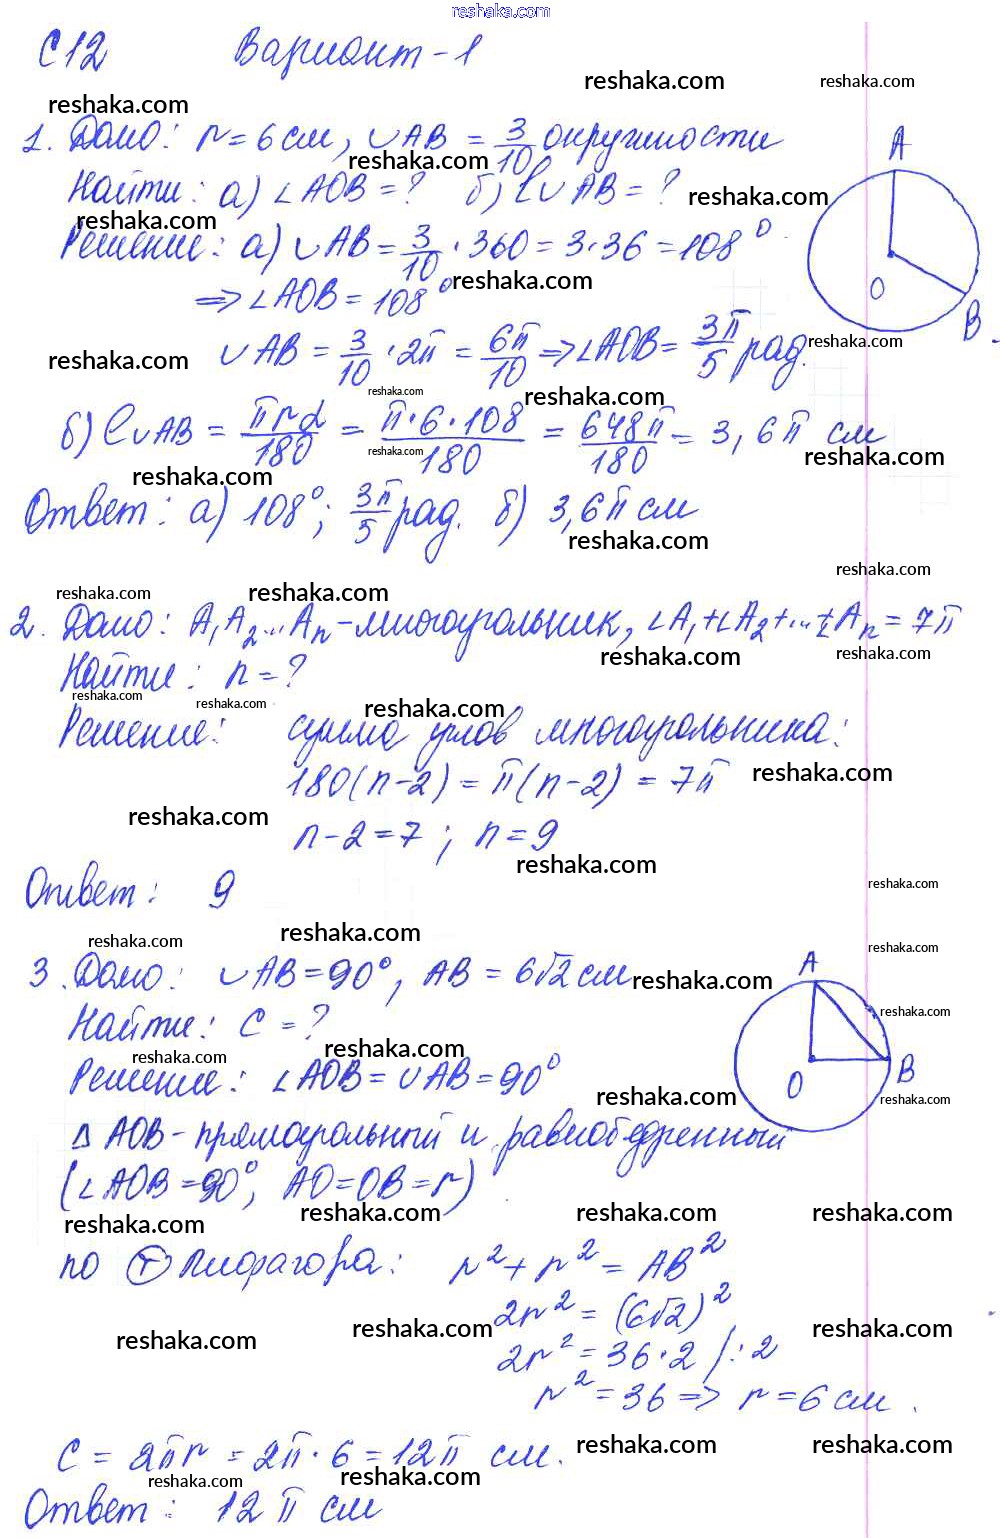 reshaka.com
С12 Вариант-1
1. Дано: r=6 см, ∪AB = 3/10 окружности
Найти: а) ∠AOB=? б) l∪AB=?
Решение: а) ∪AB = 3/10 · 360 = 3·36 = 108°
⇒ ∠AOB = 108°
∪AB = 3/10 · 2π = 6π/10 ⇒ ∠AOB = 3π/5 рад.
б) l∪AB = πrα/180 = π·6·108/180 = 648π/180 = 3,6π см
Ответ: а) 108°; 3π/5 рад. б) 3,6π см
A
O
B
2. Дано: A₁A₂...Aₙ-многоугольник, ∠A₁+∠A₂+...+∠Aₙ=7π
Найти: n=?
Решение: сумма углов многоугольника:
180(n-2) = π(n-2) = 7π
n-2=7; n=9
Ответ: 9
3. Дано: ∪AB=90°, AB = 6√2 см
Найти: C=?
Решение: ∠AOB=∪AB=90°
Δ AOB-прямоугольный и равнобедренный
(∠AOB=90°, AO=OB=r)
A
O
B
по Ⓣ Пифагора: r²+r² = AB²
2r² = (6√2)²
2r² = 36·2 /:2
r² = 36 ⇒ r=6 см.
C = 2πr = 2π·6 = 12π см.
Ответ: 12π см